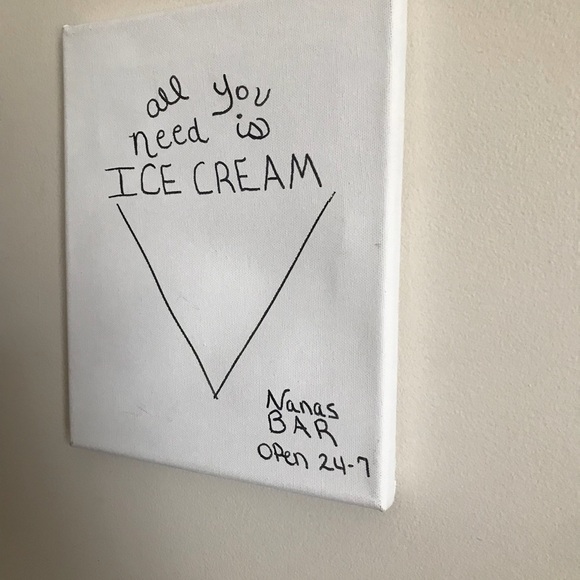 all you
need is
ICE CREAM
Nanas
BAR
OPen 24-7